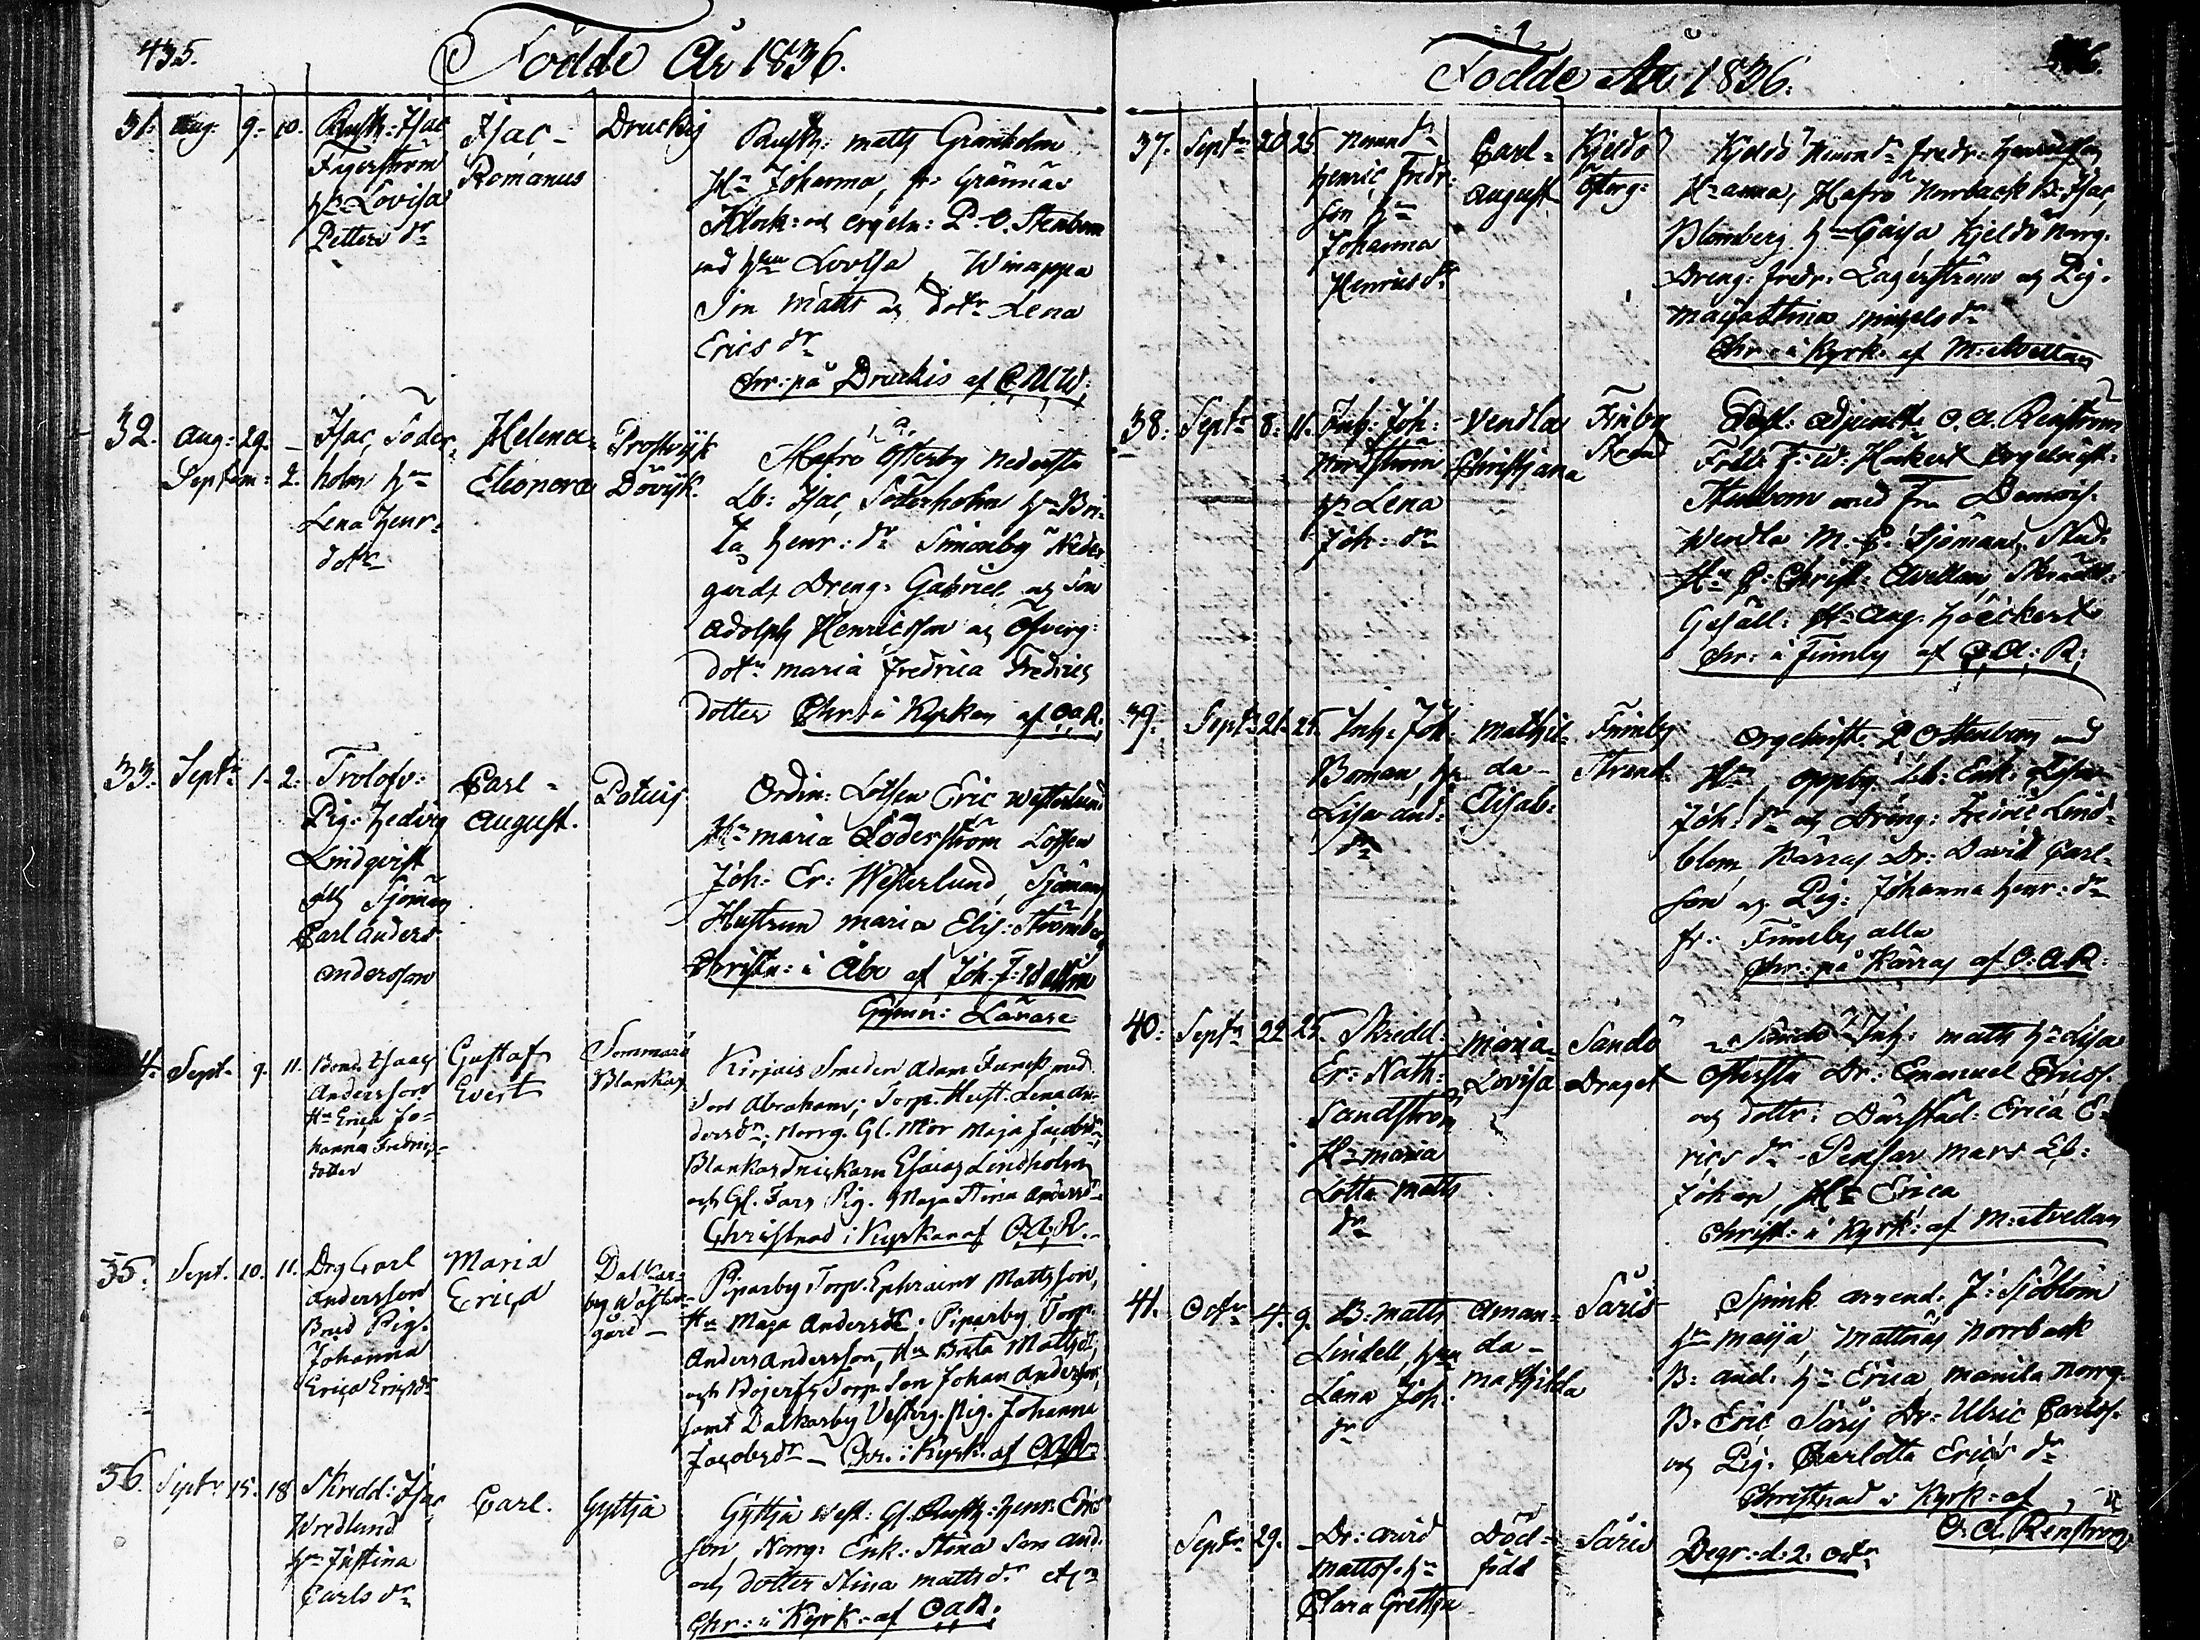 435.
Födde År 1836.
31. Aug. 9. 10. Rusth: Isac Fagerström Hu Lovisa Petters dr
Isac Romanus
Druckis
Rusth: Matts Granholm
Hu Johanna, fr: Grännäs
Klock: och Orgeln: P. O. Stenbom
med Hu Lovisa, Winappa
Son Matts och dotr Lena
Erics dr
Chr: på Druckis af
32. Aug: 29. Septem: 2.
Isac Söderholm Hu Lena Henr: dotr
Helena Eleonora
Prostvijk Dövijk.
Österby Nedersta
Lb: Isac Söderholm Hu Brita
Henr: dr Simonby Nedergårds
Dreng: Gabriel och Son
Adolph Henricsson och Öfverg:
dotr Maria Fredrica Fredrics
dotter Chr: i Kyrkan af O.A.R.
33. Septr 1. 2.
Trolofv: Pig: Hedvig Lindqvist och Sjöman Carl Anders Andersson
Carl August.
Ordin: Lotsen Eric Westerlund
Hu Maria Söderström Lotsen
Joh: Er: Westerlund, Sjömans
Hustrun Maria Elis: Strömberg
Christn: i Åbo af Joh. F: Wallin
Gymn: Lärare
Sept. 9. 11.
Bond. Isaac Andersson Hu Erica Johanna Fredricsdotter
Gustaf Evert
Sommarö Blankas
Kirjais Smeden Adam Funck med
Son Abraham; Torp. Hust. Lena Andersdr;
Norrg. Gl. Mor Maja Jacobsdr;
Blankas Snickarn Esaias Lindholm
och Gl. Fars Pig. Maja Stina Andersdr
Christnad i Kyrkan af O.A.R.
35. Sept. 10. 11.
Drg Carl Andersson Brud Pig. Johanna Erica Ericsdr
Maria Erica
Dalkarby Westergård
Piparby Torp. Ephraim Mattsson,
Hu Maja Andersdr. Piparby Torp.
Anders Andersson, Hu Brita Mattsdr,
och Torp. Son Johan Andersson,
samt Dalkarby Vesterg. Pig. Johanna
Jacobsdr - Chr. i Kyrk. af O.A.R.
36. Septr 15. 18
Skredd: Isac Wredlund Hu Justina Carls dr
Carl.
Gyttja
Gyttja West: Gl. Rusth: Henr: Ericsson,
Norrg: Enk: Stina Son And:
och dotter Stina Matts dr
Chr: i Kyrk: af O.A.R.
Födde År 1836.
37. Septr 20 25.
Henric Fredr: son Hu Johanna Henrics dr
Carl August
Kjeldö Österg:
Kjeldö Fredr: Henricsson
Hu Anna, Norback B: Isac
Blomberg Hu Cajsa Kjeldö Norrg.
Dreng: Fredr: Lagerström och Pig.
Maja Stina Michels dr
Chr: i Kyrk: af M: Avellan
38. Septr 8. 11.
Inh: Joh: Nordström Hu Lena Joh: dr
Vendla Christjana
Finby Strand
Adjunct O. A. Renström
F: W: Höckert Orgelnist:
Stenbom med Fru Demois:
Wendla M. C. Sjöman, Stud:
Christ: Avellan,
Gesäll: Aug. Höeckert
Chr: i Finnby af O.A.R.
39. Septr 21. 25.
Inh: Joh: Boman Hu Lisa And: dr
Mathilda Elisab:
Finnby Strand
Orgelnist: P O Stenbom med
Hu, Oppby Lb: Enk:
Joh: dr och Dreng: Fredric Lindblom,
Kärras Dr: David Carlson
och Pig: Johanna Henr: dr
fr: Finnby alla
Chr: på Kärras af O.A.R.
40. Septr 22 25.
Skredd: Er: Nath: Sandström Hu Maria Lotta Matts dr
Maria Lovisa
Sandö Draget
Sandö Inh: Matts Hu Lisa
Dr: Emanuel Ericss.
och dottr: Erica Erics dr
Lb: Johan, Hu Erica
Christ: i Kyrk: af M: Avellan
41. Octr 4. 9.
B: Matts Lindell, Hu Lena Joh: dr
Amanda Mathilda
Säris
Spink arrend: J: Sjöblom
Hu Maija, Mattnäs Norrback
B: And: Hu Erica Mänila Norrg:
B: Eric Säris Dr: Ulric Carlss.
och Pig: Charlotta Erics dr
Christnad i Kyrk: af O. A. Renström
Septr 29.
Dr: Arvid Mattss. Hu Clara Gretha
Dödfödd
Säris
Begr: d: 2. Octr